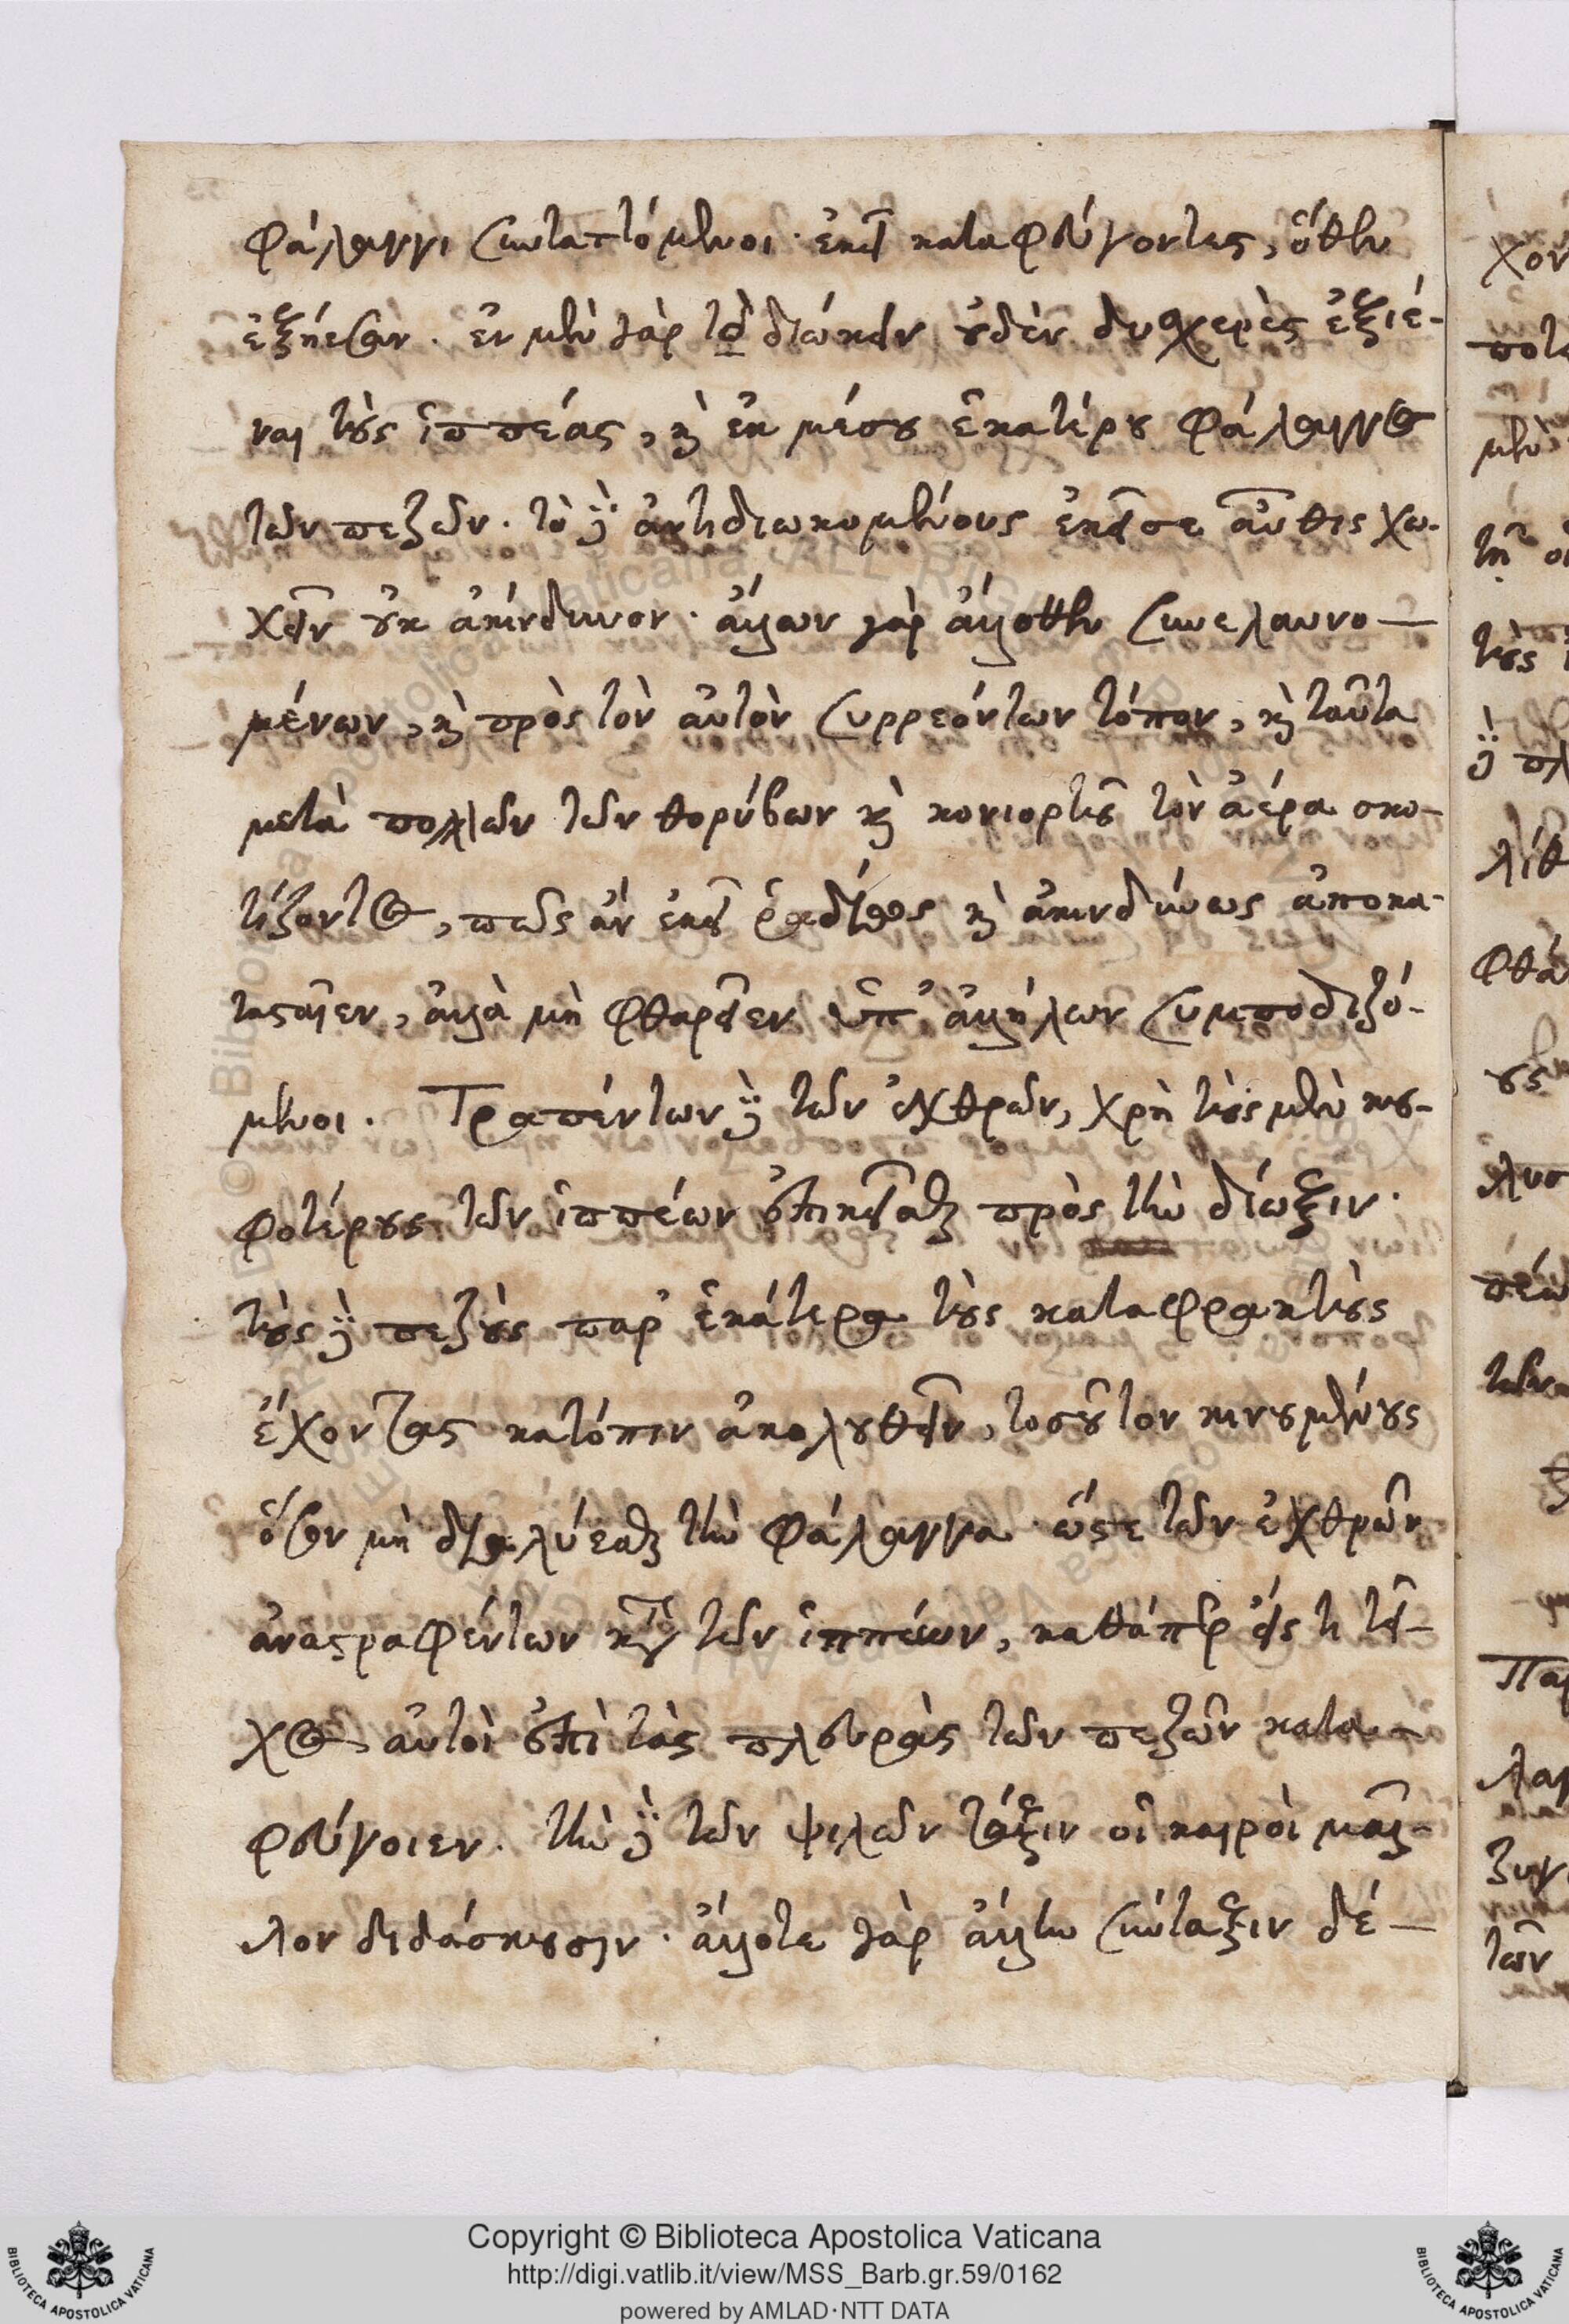 φάλαγγι συνταττόμενοι· ἐκεῖ καταφεύγοντες, ὅθεν
ἐξήεσαν. ἐν μὲν γὰρ τῷ διώκειν οὐδὲν δυσχερὲς ἐξιέ-
ναι τοὺς ἱππέας, καὶ ἐκ μέσου ἑκατέρου φάλαγγος
τῶν πεζῶν. τὸ δὲ ἀντιδιωκομένους ἐκεῖσε αὖθις χω-
χεῖν οὐκ ἀκίνδυνον· ἄλλων γὰρ ἄλλοθεν συνελαυνο-
μένων, καὶ πρὸς τὸν αὐτὸν συρρεόντων τόπον, καὶ ταῦτα
μετὰ πολλῶν τῶν θορύβων καὶ κονιορτοῦ τὸν ἀέρα σκο-
τίζοντος, πῶς ἂν ἐκεῖ ῥαδίως καὶ ἀκινδύνως ἀποκα-
τασταῖεν, ἀλλὰ μὴ φθαρεῖεν ὑπ' ἀλλήλων συμποδιζό-
μενοι. Τραπέντων δὲ τῶν ἐχθρῶν, χρὴ τοὺς μὲν κου-
φοτέρους τῶν ἱππέων ἐπικεῖσθαι πρὸς τὴν δίωξιν·
τοὺς δὲ πεζοὺς παρ' ἑκάτερα τοὺς καταφρακτοὺς
ἔχοντας κατόπιν ἀκολουθεῖν, τοσοῦτον κινουμένους
ὅσον μὴ διαλύεσθαι τὴν φάλαγγα· ὥστε τῶν ἐχθρῶν
ἀναστραφέντων κατὰ τῶν ἱππέων, καθάπερ εἴς τι τεῖ-
χος αὐτοὶ ἐπὶ τὰς πλευρὰς τῶν πεζῶν κατα-
φεύγοιεν. τὴν δὲ τῶν ψιλῶν τάξιν οἱ καιροὶ μᾶλ-
λον διδάσκουσιν· ἄλλοτε γὰρ ἄλλην σύνταξιν δέ-